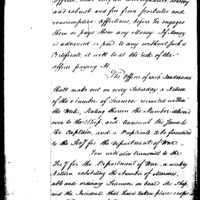 and robust and free from fractures and
consumptive Affections, before he engages
them or pays them any Money. If Money
is advanced or paid to any without such a
Certificate, it will be at the risk of the
officer paying it.
The Officer of each rendezvous
shall make out on every Saturday a Return of
the number of Seamen recruited within
the Week, stating therein the Number
over to the Ship, and transmit the same to
the Captain, and a Duplicate to be forwarded
to the Secy of the Department of War.
You will also transmit to the
Secy for the Department of War, a weekly
Return exhibiting the number of Marines,
able and ordinary Seamen on board the Ship
and the Incidents that have taken place